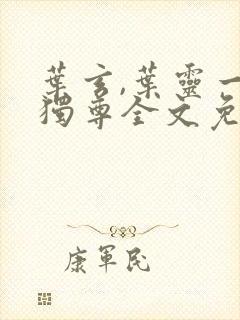 葉玄,葉靈一
獨尊全文免
康軍民